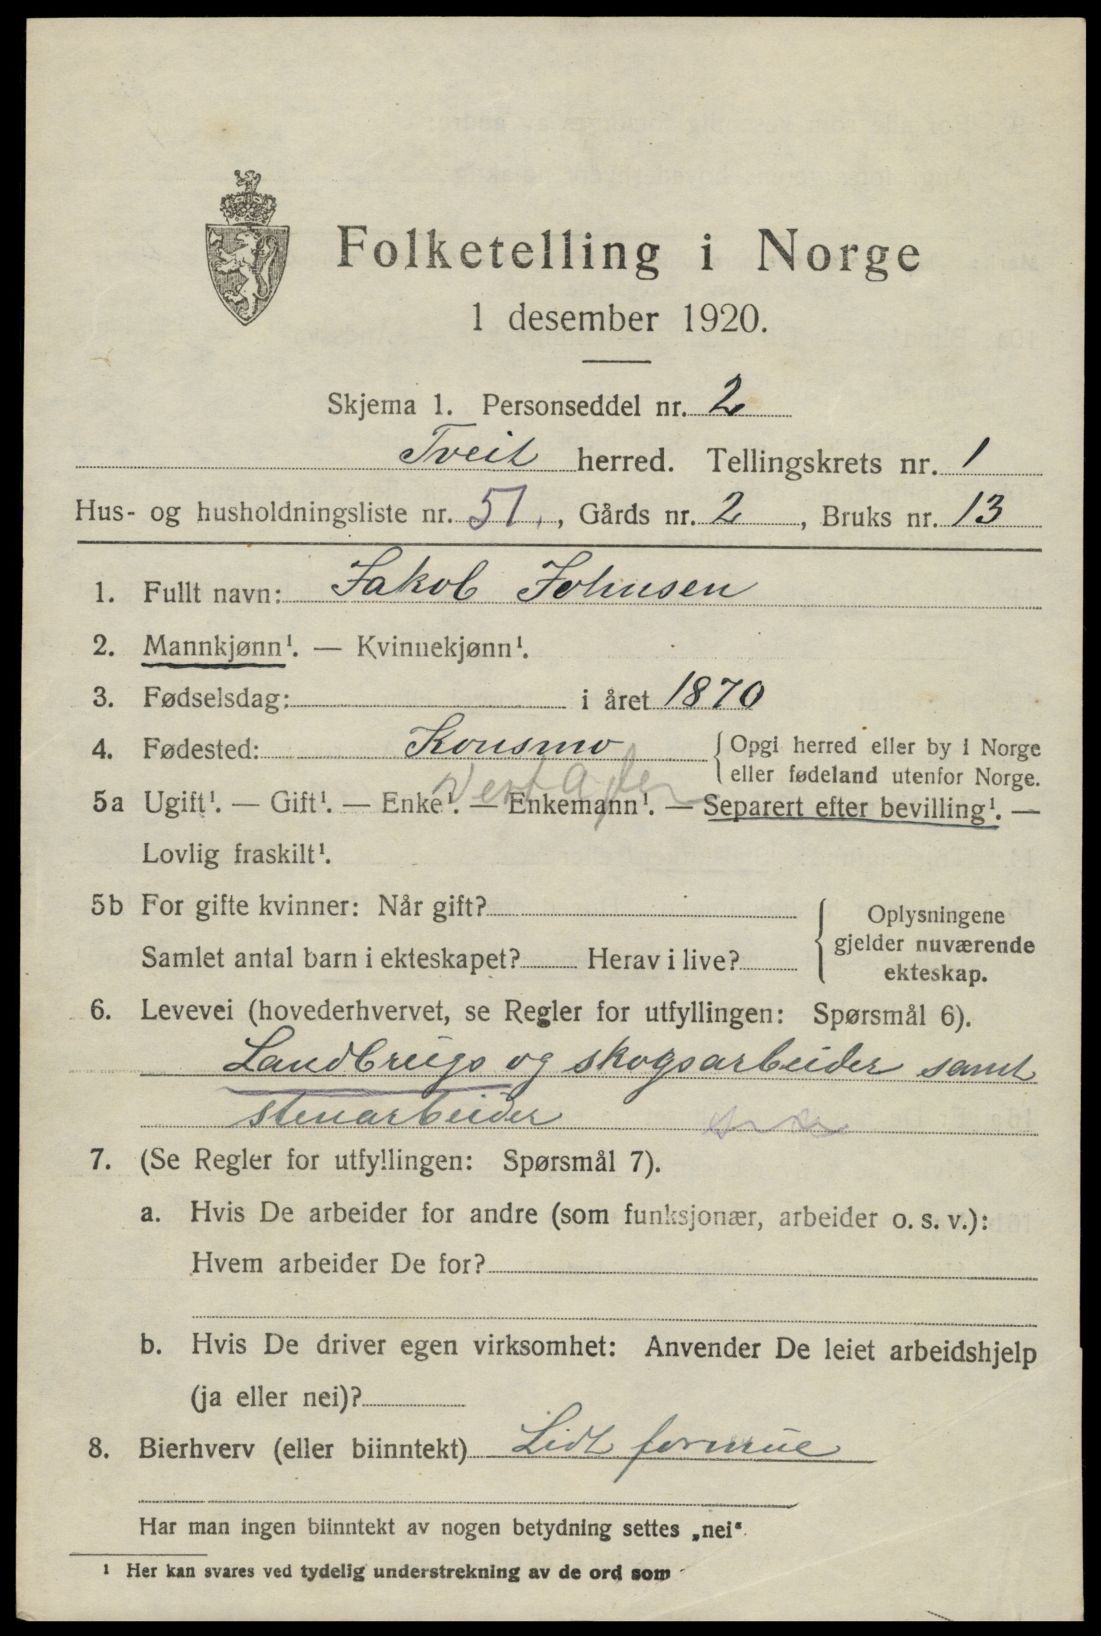 Folketelling i Norge
1 desember 1920.
Skjema 1. Personseddel nr. 2
Tveit herred. Tellingskrets nr. 1
Hus- og husholdningsliste nr. 51., Gårds nr. 2, Bruks nr. 13
1. Fullt navn: Jakob Johnsen
2. Mannkjønn¹. — Kvinnekjønn¹.
3. Fødselsdag: i året 1870
4. Fødested: Konsmo { Opgi herred eller by i Norge
eller fødeland utenfor Norge.
Vest Agder
5a Ugift¹. — Gift¹. — Enke¹. — Enkemann¹. — Separert efter bevilling¹. —
Lovlig fraskilt¹.
5b For gifte kvinner: Når gift?
Samlet antal barn i ekteskapet? Herav i live?
{ Oplysningene
gjelder nuværende
ekteskap.
6. Levevei (hovederhvervet, se Regler for utfyllingen: Spørsmål 6).
Landbrugs og skogsarbeider samt
stenarbeider
7. (Se Regler for utfyllingen: Spørsmål 7).
a. Hvis De arbeider for andre (som funksjonær, arbeider o. s. v.):
Hvem arbeider De for?
b. Hvis De driver egen virksomhet: Anvender De leiet arbeidshjelp
(ja eller nei)?
8. Bierhverv (eller biinntekt) Lidt formue
Har man ingen biinntekt av nogen betydning settes „nei“.
¹ Her kan svares ved tydelig understrekning av de ord som